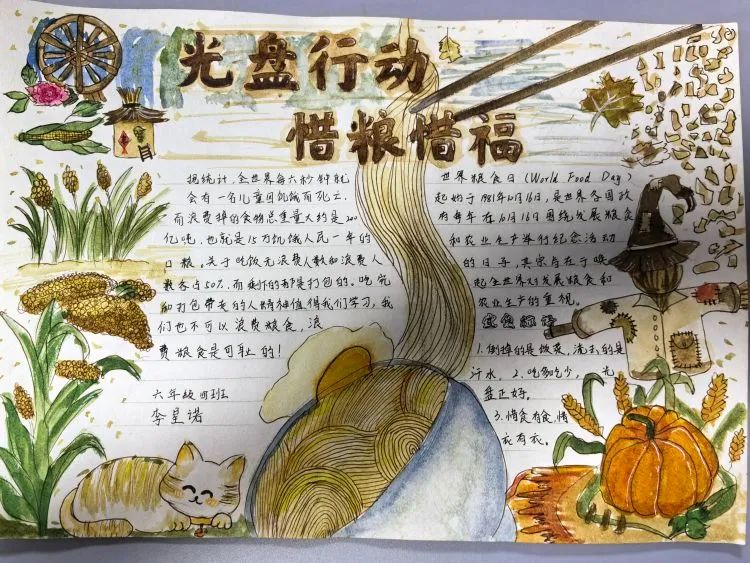 光盘行动
惜粮惜福
据统计,全世界每六秒钟就
会有一名儿童因饥饿而死亡.
而浪费掉的食物总重量大约是200
亿吨.也就是15万饥饿人民一年的
口粮.关于吃饭无浪费人数和浪费人
数各占50%.而剩下的都是打包的。吃完
和打包带走的人精神值得我们学习,我
们也不可以浪费粮食,浪
费粮食是可耻的!
六年级四班
李呈诺
世界粮食日(World Food Day)
起始于1981年10月16日,是世界各国政
府每年在10月16日围绕发展粮食
和农业生产举行纪念活动
的日子,其宗旨在于唤
起全世界对发展粮食和
农业生产的重视。
1.倒掉的是饭菜,流去的是
汗水。2.吃多吃少,光
盘正好。
3.惜食有食,惜
衣有衣。